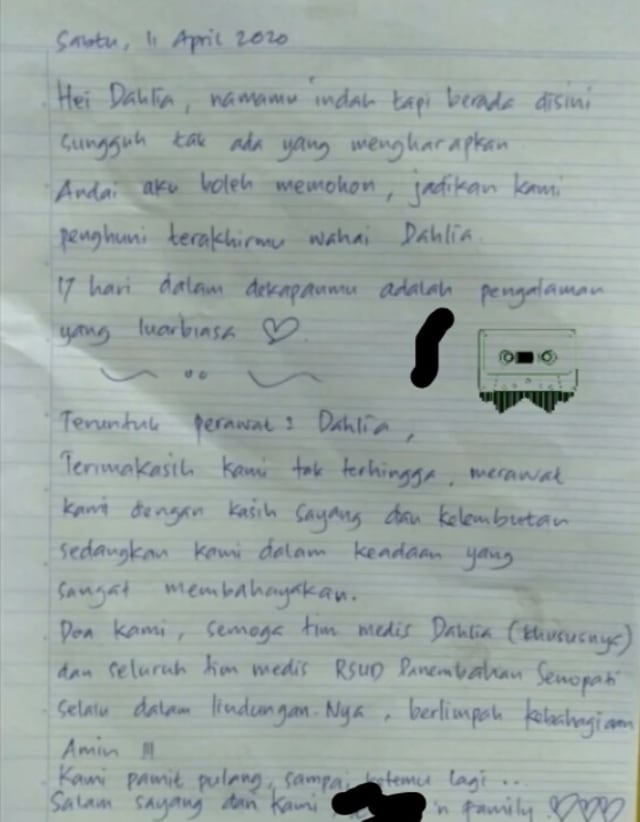 Sabtu, 11 April 2020
Hei Dahlia, namamu indah tapi berada disini
sungguh tak ada yang mengharapkan
Andai aku boleh memohon, jadikan kami
penghuni terakhirmu wahai Dahlia.
17 hari dalam dekapanmu adalah pengalaman
yang luarbiasa ♡.
Teruntuk perawat2 Dahlia,
Terimakasih kami tak terhingga, merawat
kami dengan kasih sayang dan kelembutan
sedangkan kami dalam keadaan yang
sangat membahayakan.
Doa kami, semoga tim medis Dahlia (khususnya)
dan seluruh tim medis RSUD Panembahan Senopati
selalu dalam lindungan-Nya, berlimpah kebahagiaan
Amin !!!
Kami pamit pulang, sampai ketemu lagi ..
Salam sayang dari kami 'n family ♡♡♡